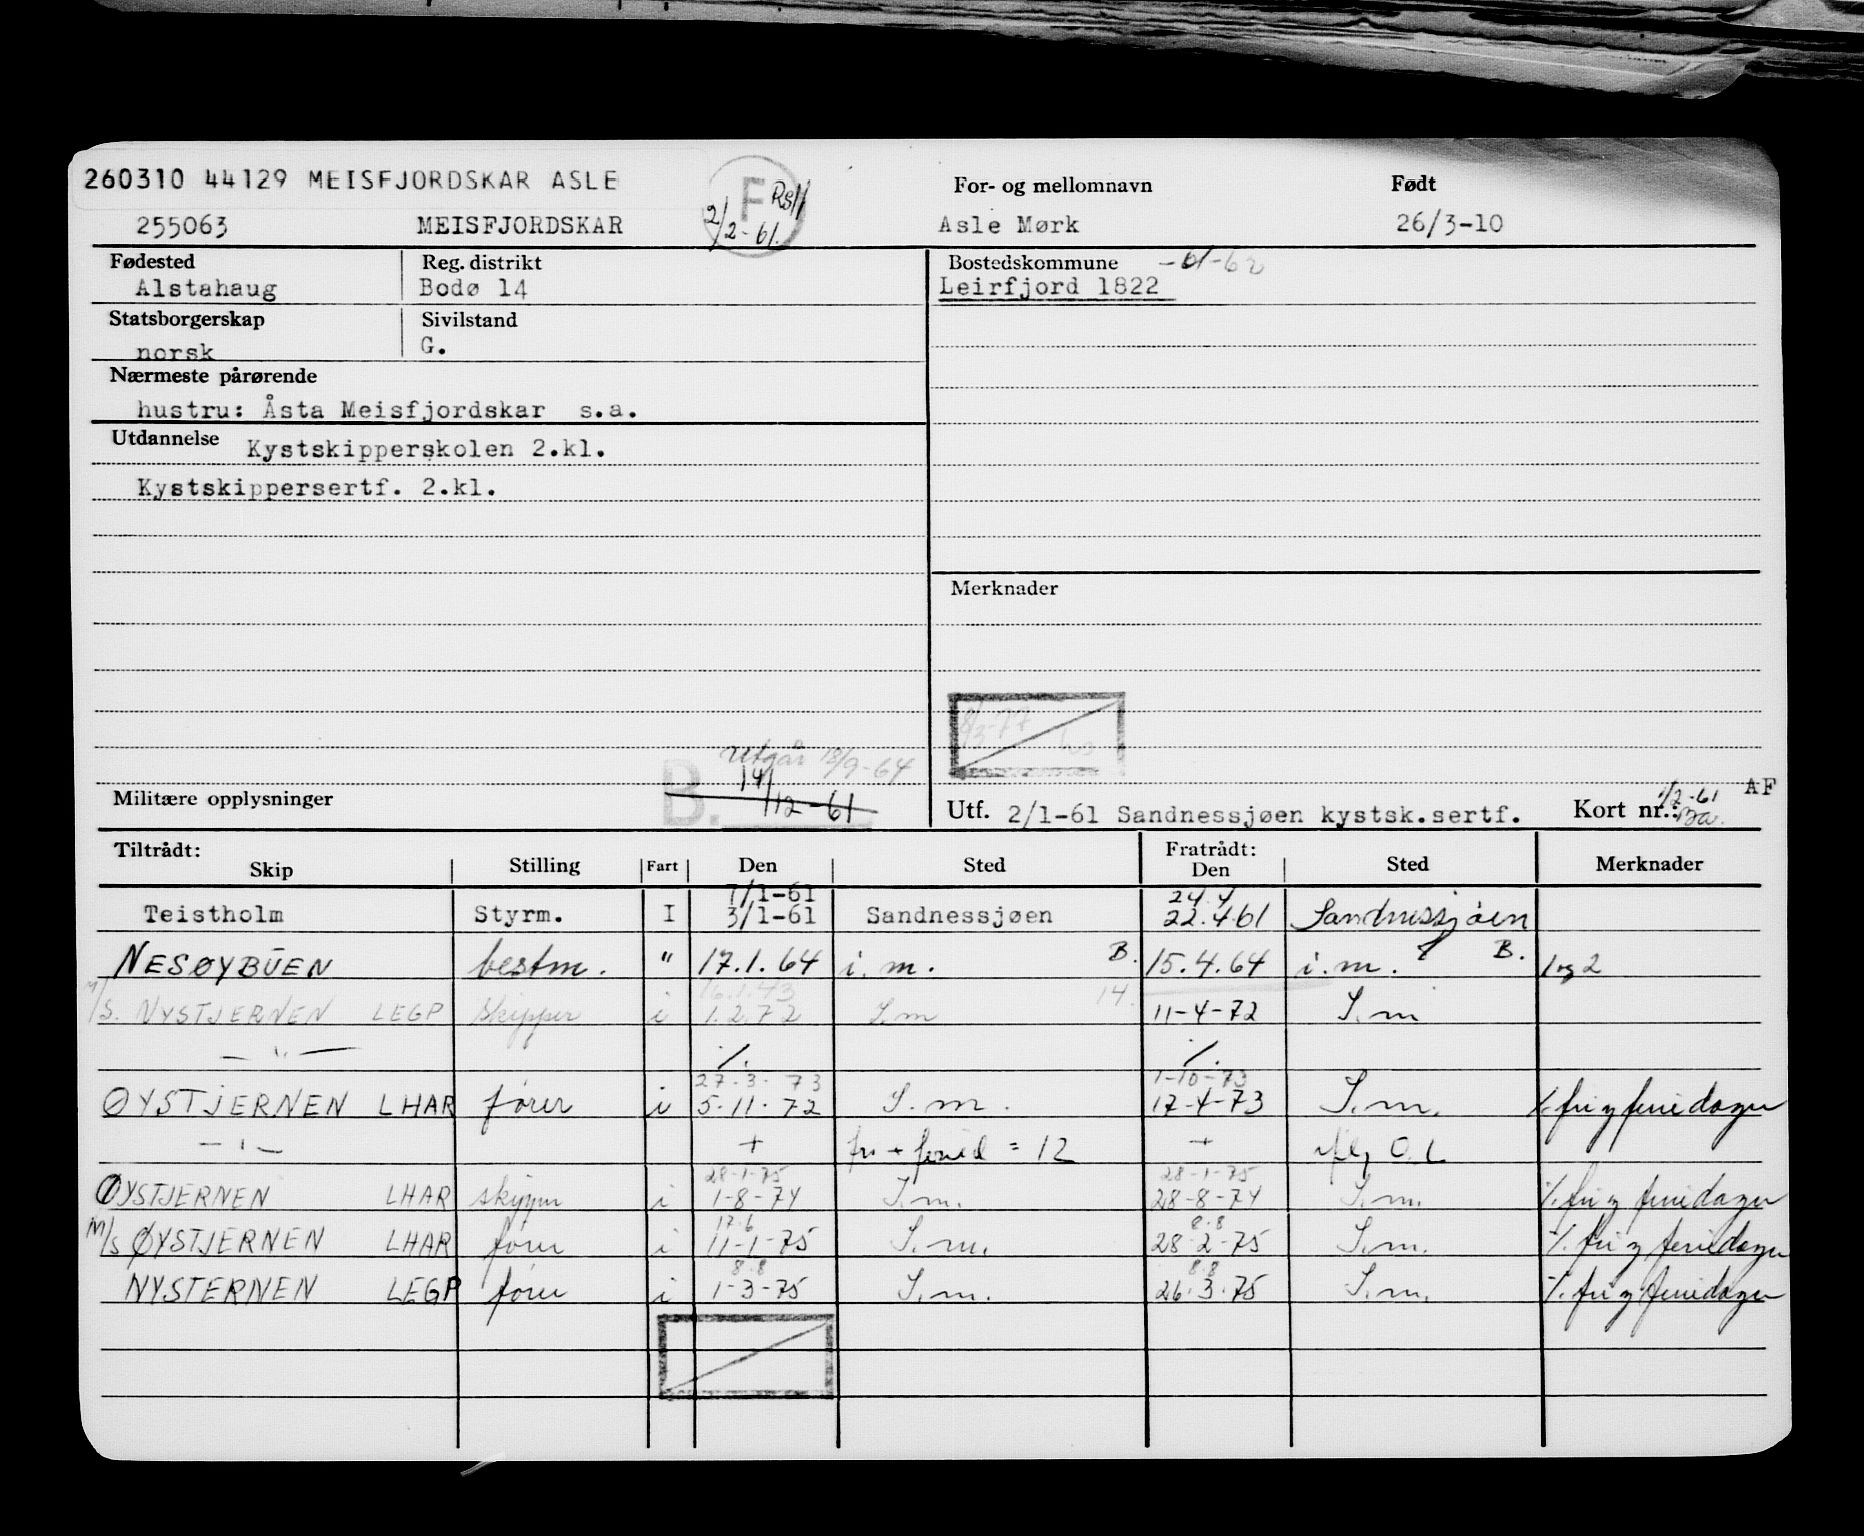 260310 44129 MEISFJORDSKAR ASLE
F
2/2-61.
For- og mellomnavn
Født
255063 MEISFJORDSKAR
Asle Mørk
26/3-10
Fødested
Reg. distrikt
Bostedskommune
Alstahaug
Bodø 14
Leirfjord 1822
Statsborgerskap
Sivilstand
norsk
G.
Nærmeste pårørende
hustru: Åsta Meisfjordskar s.a.
Utdannelse
Kystskipperskolen 2.kl.
Kystskippersertf. 2.kl.
Merknader
8/3-77
utgår 18/9-64
B.
14/12-61
Militære opplysninger
Utf. 2/1-61 Sandnessjøen kystsk.sertf.
Kort nr.:
AF
Tiltrådt:
Fratrådt:
Skip Stilling Fart Den Sted Den Sted Merknader
7/1-61 24.4
Teistholm Styrm. I 3/1-61 Sandnessjøen 22.4.61 Sandnessjøen
NESØYBUEN bestm. " 17.1.64 i.m. B. 15.4.64 i.m. B. 1 og 2
M/S. NYSTJERNEN LEGP skipper i 1.2.72 S.m 14. 11-4-72 S.m
— " — %. %.
27.3.73 1-10-73
ØYSTJERNEN LHAR fører i 5.11.72 S.m. 17-4-73 S.m. %. fri og feriedager
— " — + fri + feried = 12 +
28-1-75 28-1-75
ØYSTJERNEN LHAR skipper i 1-8-74 S.m. 28-8-74 S.m. %. fri og feriedager
17.6 8.8
M/S ØYSTJERNEN LHAR fører i 11-1-75 S.m. 28-2-75 S.m. %. fri og feriedager
8.8 8.8
NYSTERNEN LEGP fører i 1-3-75 S.m. 26.3.75 S.m. %. fri og feriedager